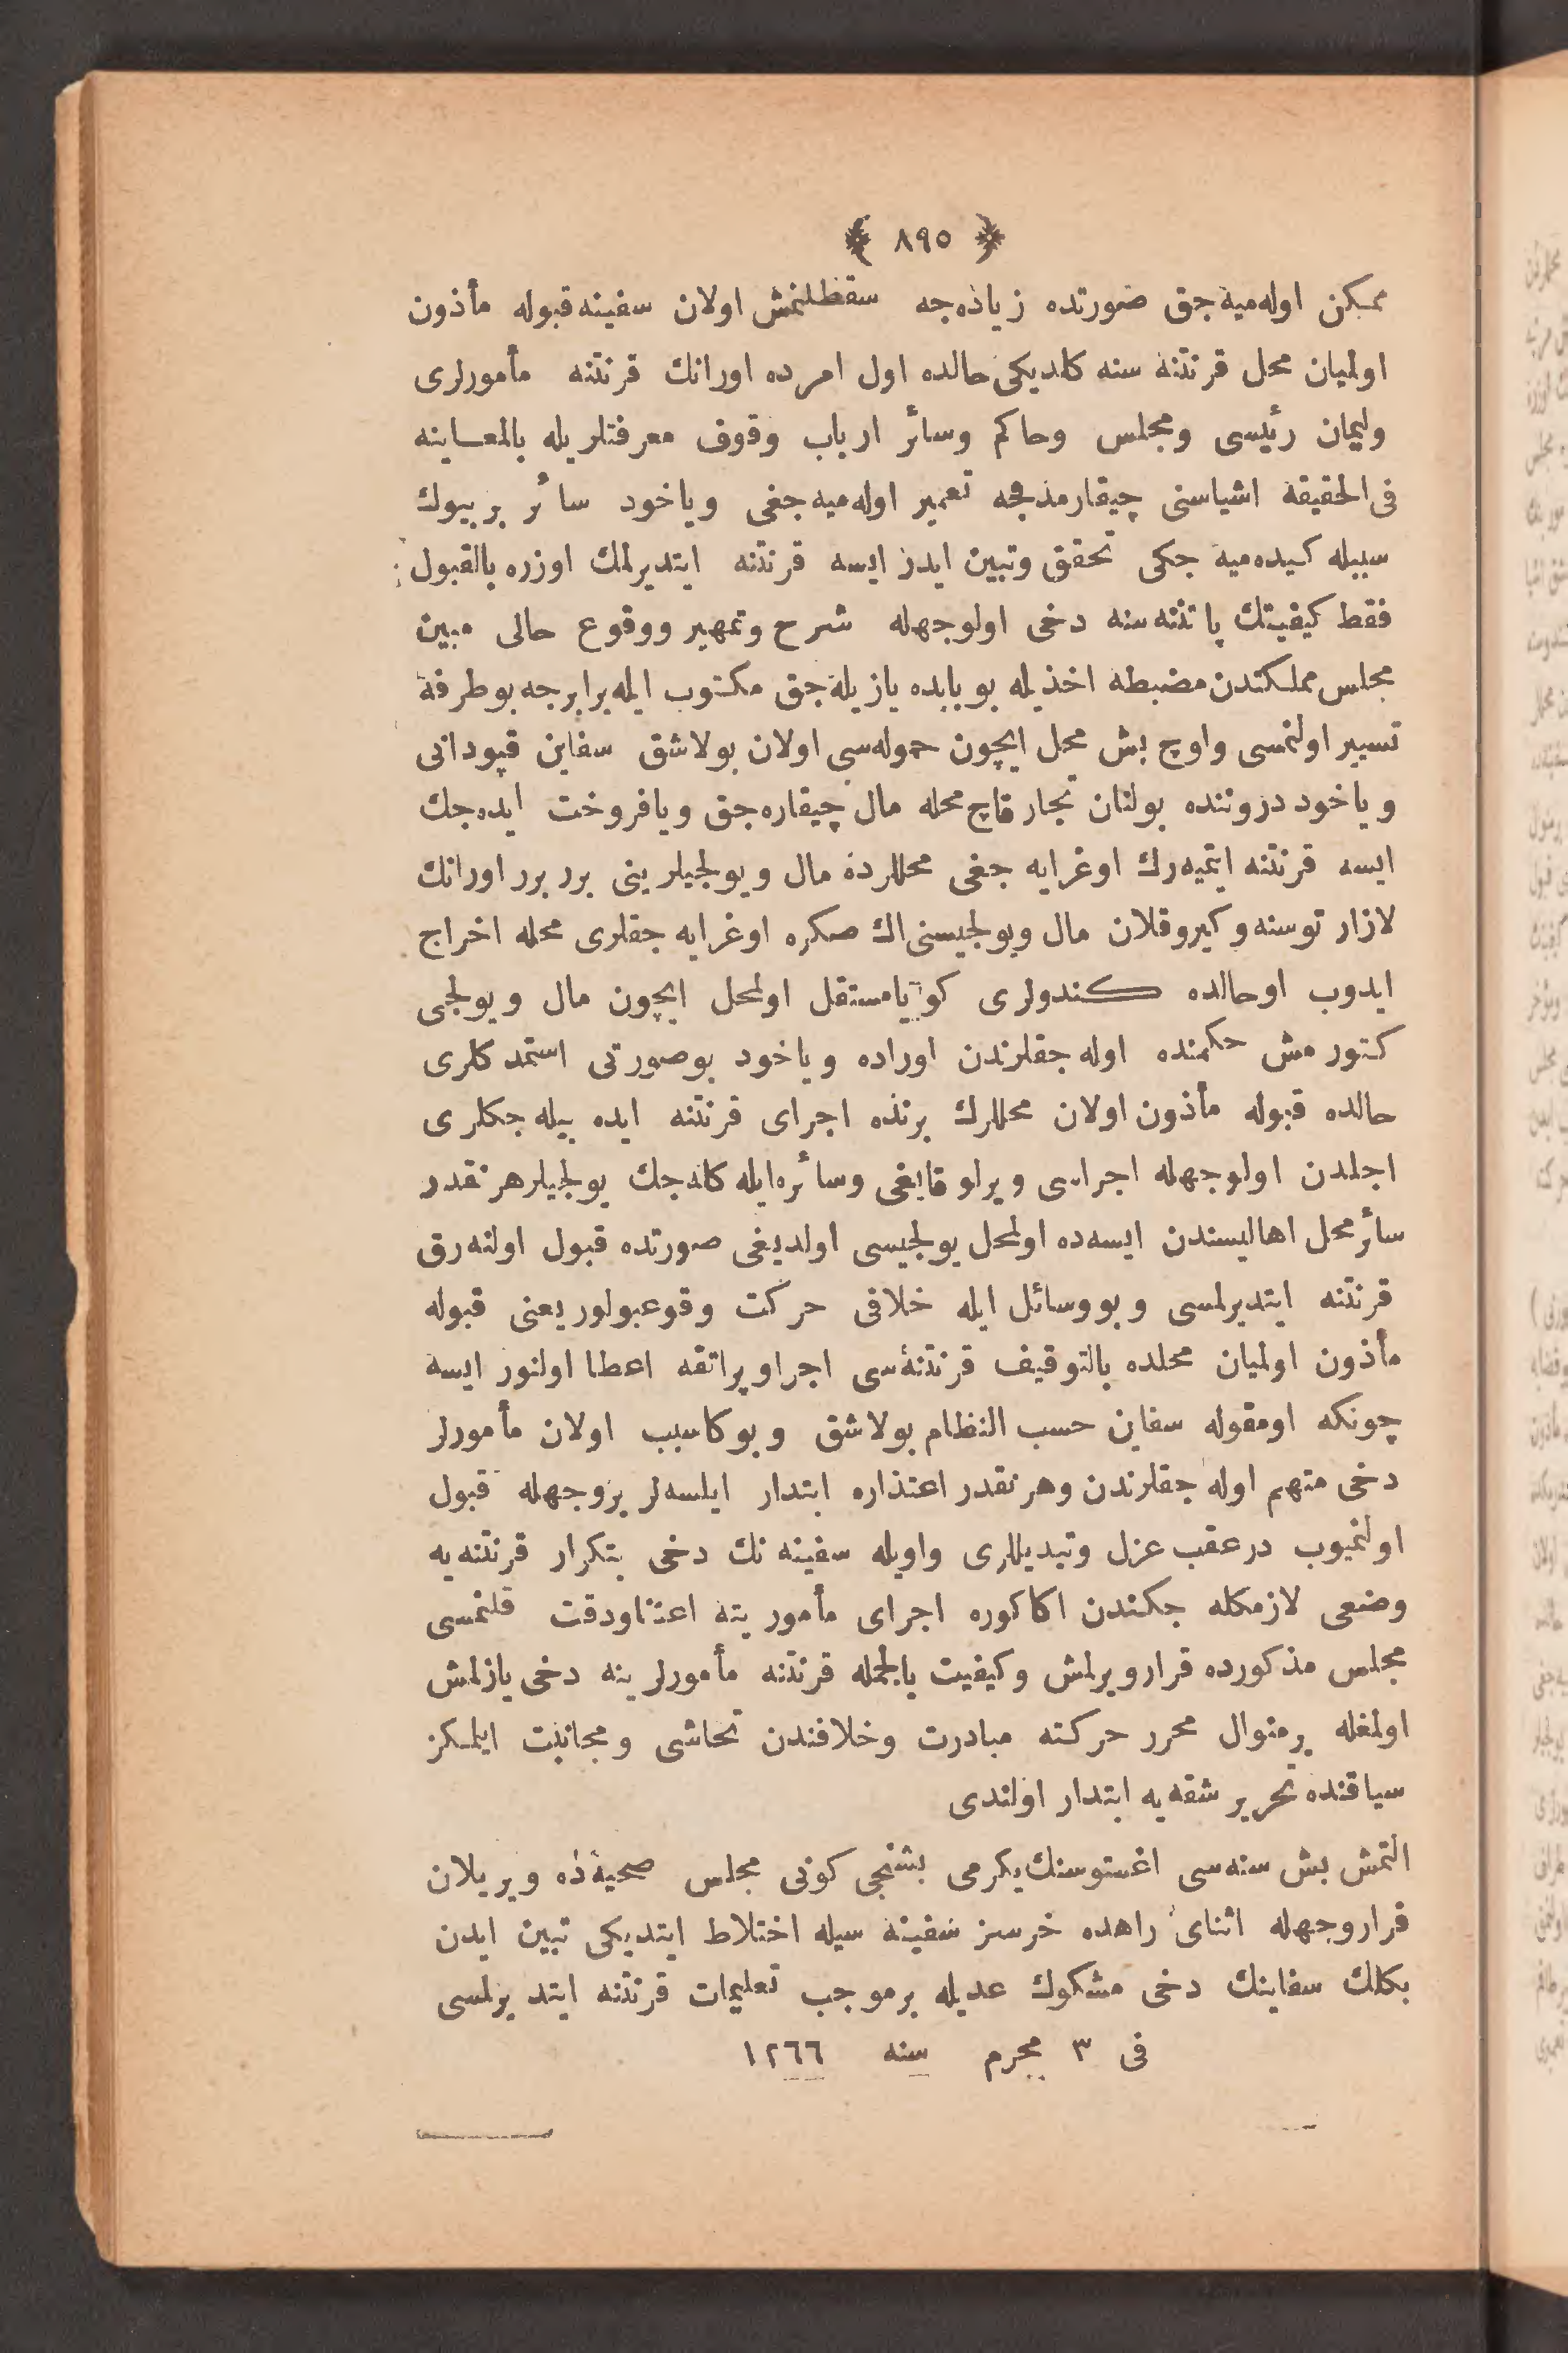 ﴿ ٨٩٥ ﴾
ممكن اوله‌ميه جق صورتده زياده‌جه سقطلنمش اولان سفينه قبوله مأذون
اولميان محل قرنتنه سنه كلديكى حالده اول امرده اورانك قرنتنه مأمورلرى
وليمان رئيسى ومجلس وحاكم وسائر ارباب وقوف معرفتلريله بالمعاينه
فى الحقيقه اشياسنى چيقارمدقجه تعمير اوله‌ميه جغى وياخود سائر بر بيوك
سببله كيده‌ميه جكى تحقق وتبين ايدر ايسه قرنتنه ايتديرلمك اوزره بالقبول
فقط كيفيتك پاتنته سنه دخى اولوجهله شرح وتمهير ووقوع حالى مبين
مجلس مملكتدن مضبطه اخذيله بوبابده يازيله جق مكتوب ايله برابرجه بوطرفه
تسيير اولنمسى واوچ بش محل ايچون حموله‌سى اولان بولاشق سفاين قپودانى
وياخود دروننده بولنان تجار قاچ محله مال چيقاره جق ويافروخت ايده جك
ايسه قرنتنه ايتميه‌رك اوغرايه جغى محللرده مال ويولجيلرينى برر برر اورانك
لازارتوسنه وكيروقلان مال ويولجيسنى اك صكره اوغرايه جقلرى محله اخراج
ايدوب اوحالده كندولرى كويامستقل اولمحل ايچون مال ويولجى
كتورمش حكمنده اوله جقلرندن اوراده وياخود بوصورتى استمدكلرى
حالده قبوله مأذون اولان محللرك برنده اجراى قرنتنه ايده بيله جكلرى
اجلدن اولوجهله اجراسى ويرلو قايغى وسائره‌ايله كله‌جك يولجيلر هرنقدر
سائر محل اهاليسندن ايسه‌ده اولمحل يولجيسى اولديغى صورتده قبول اولنه‌رق
قرنتنه ايتديرلمسى وبووسائل ايله خلافى حركت وقوعبولور يعنى قبوله
مأذون اولميان محلده بالتوقيف قرنتنه‌سى اجراوپراتقه اعطا اولنور ايسه
چونكه اومقوله سفاين حسب النظام بولاشق وبوكاسبب اولان مأمورلر
دخى متهم اوله جقلرندن وهرنقدر اعتذاره ابتدار ايلسه‌لر بروجهله قبول
اولنميوب درعقب عزل وتبديللرى واويله سفينه نك دخى بتكرار قرنتنه‌يه
وضعى لازمكله جكندن اكاكوره اجراى مأموريته اعتناودقت قلنمسى
مجلس مذكورده قرارويرلمش وكيفيت بالجمله قرنتنه مأمورلرينه دخى يازلمش
اولمغله برمنوال محرر حركته مبادرت وخلافندن تحاشى ومجانبت ايلمكز
سياقنده تحرير شقه‌يه ابتدار اولندى
التمش بش سنه‌سى اغستوسنك يكرمى بشنجى كونى مجلس صحيه‌ده ويريلان
قراروجهله اثناى راهده خرسز سفينه سيله اختلاط ايتديكى تبين ايدن
بكلك سفاينك دخى مشكوك عديله برموجب تعليمات قرنتنه ايتديرلمسى
فى ٣ محرم سنه ١٢٦٦